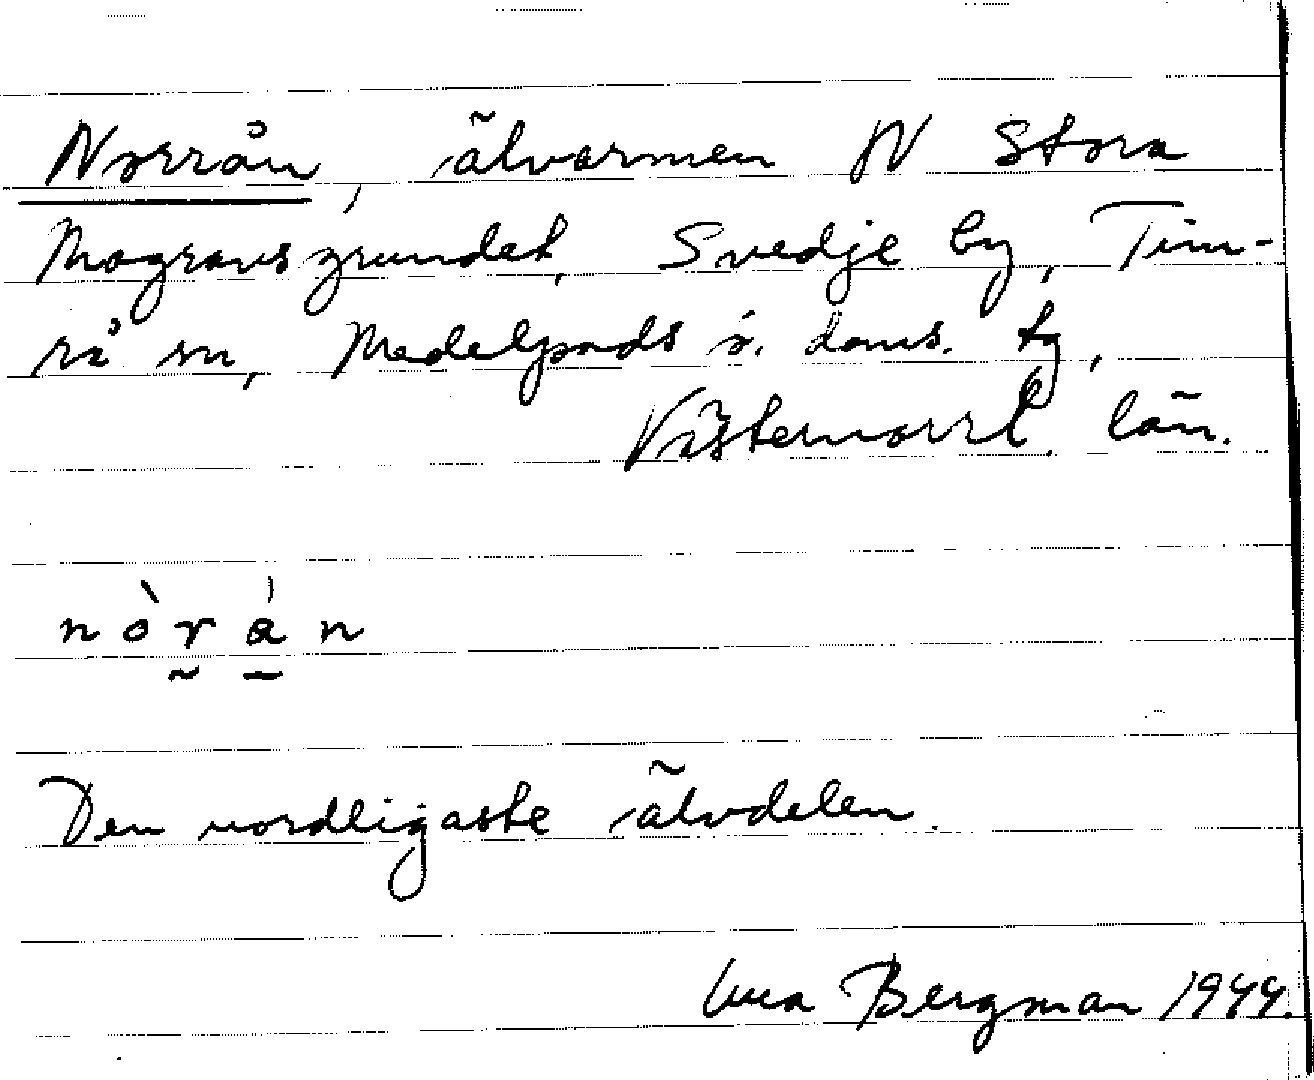 Norrån, älvarmen N Stora
Mogravsgrundet, Svedje by, Tim-
rå sn, Medelpads ö. doms. tg,
Västernorrl. län.
nòrán
Den nordligaste älvdelen.
Bergman 1944.